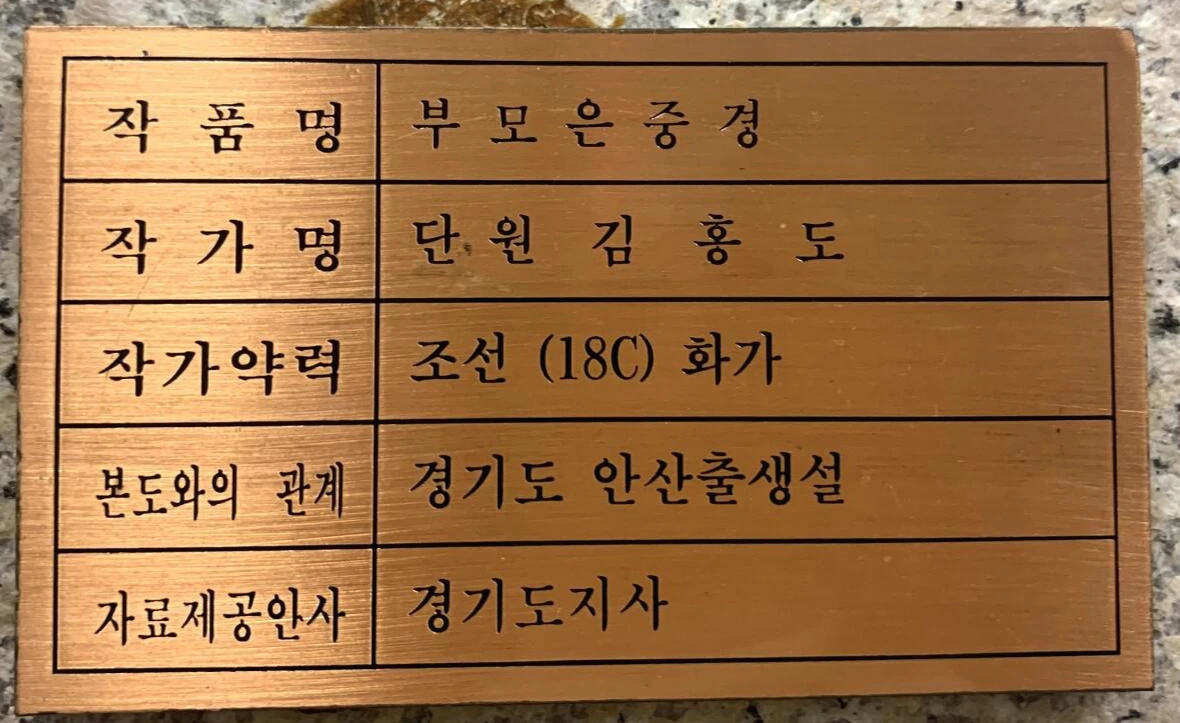 작품명 부모은중경
작가명 단원 김홍도
작가약력 조선 (18C) 화가
본도와의 관계 경기도 안산출생설
자료제공안사 경기도지사